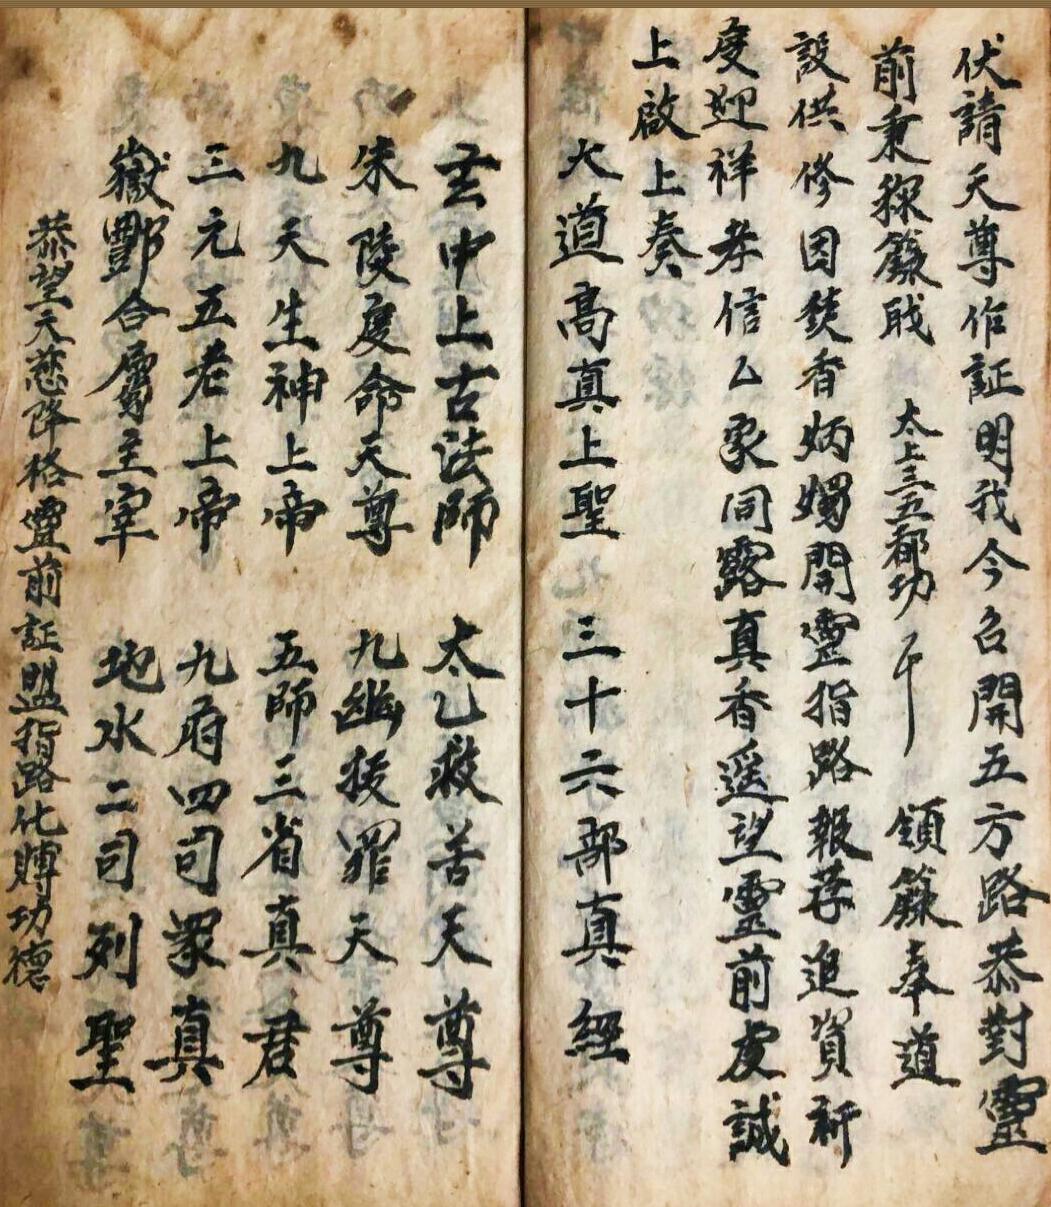 伏請天尊作証明我今召開五方路恭對靈
前秉稱籙戝 太上三五都功 領籙奉道
設供修因焚香炳燭開靈指路報荐追資祈
度迎祥孝信厶眾同露真香遥望靈前虔誠
上啟上奏
大道高真上聖 三十六部真經
玄中上古法師 太乙救苦天尊
朱陵度命天尊 九幽拔罪天尊
九天生神上帝 五師三省真君
三元五老上帝 九府四司眾真
嶽酆合屬主宰 地水二司列聖
恭望天慈降格靈前証盟指路化賻功德